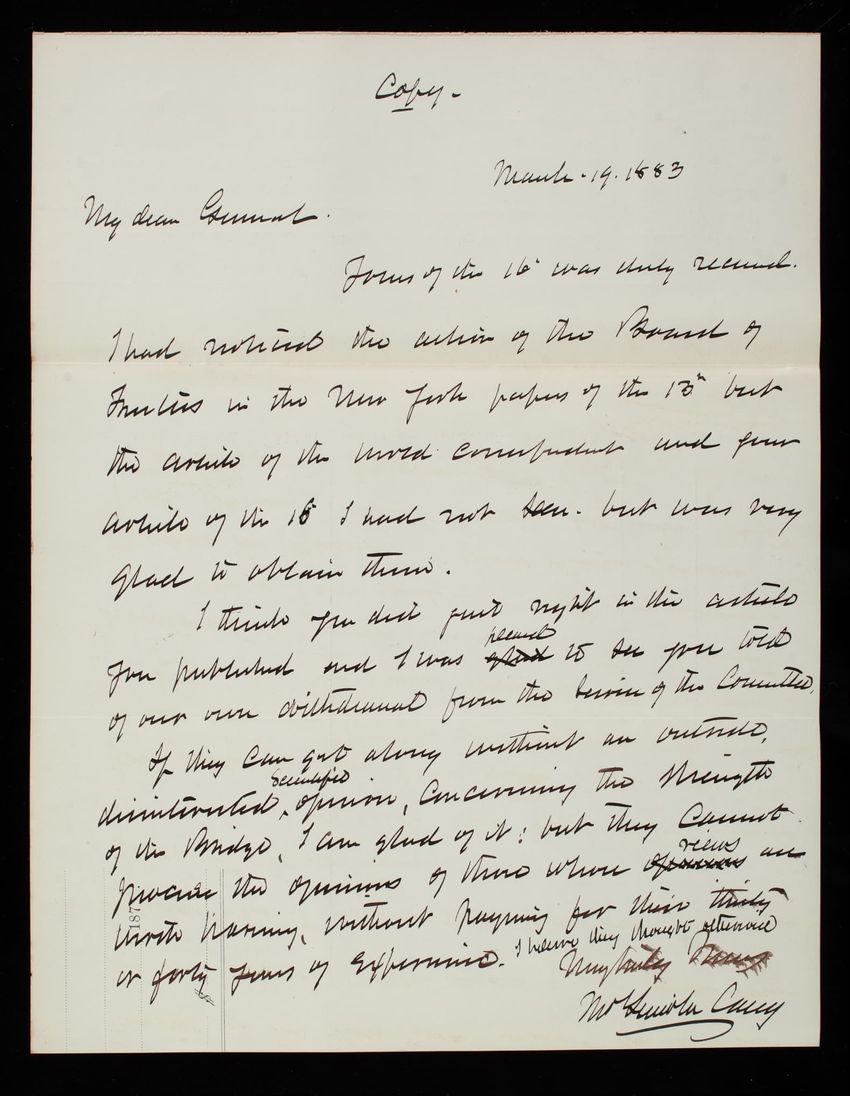 Copy.
March. 19. 1883
My dear General.
Yours of the 16 was duly received.
I had noticed the action of the Board of
Trustees in the New York papers of the 13th but
the article of the World correspondent and your
article of the 16 I had not seen. but was very
glad to obtain them.
I think you did just right in the article
you published and I was glad pleased to see you told
of our own withdrawal from the service of the Committee.
If they can get along without an outside,
disinterested, scientific opinion, concerning the strength
of the Bridge, I am glad of it: but they cannot
procure the opinions of those whose opinions views are
worth having, without paying for their thirty
or forty years of experience. I believe they thought otherwise
Very truly Yours
Thos Lincoln Casey
187